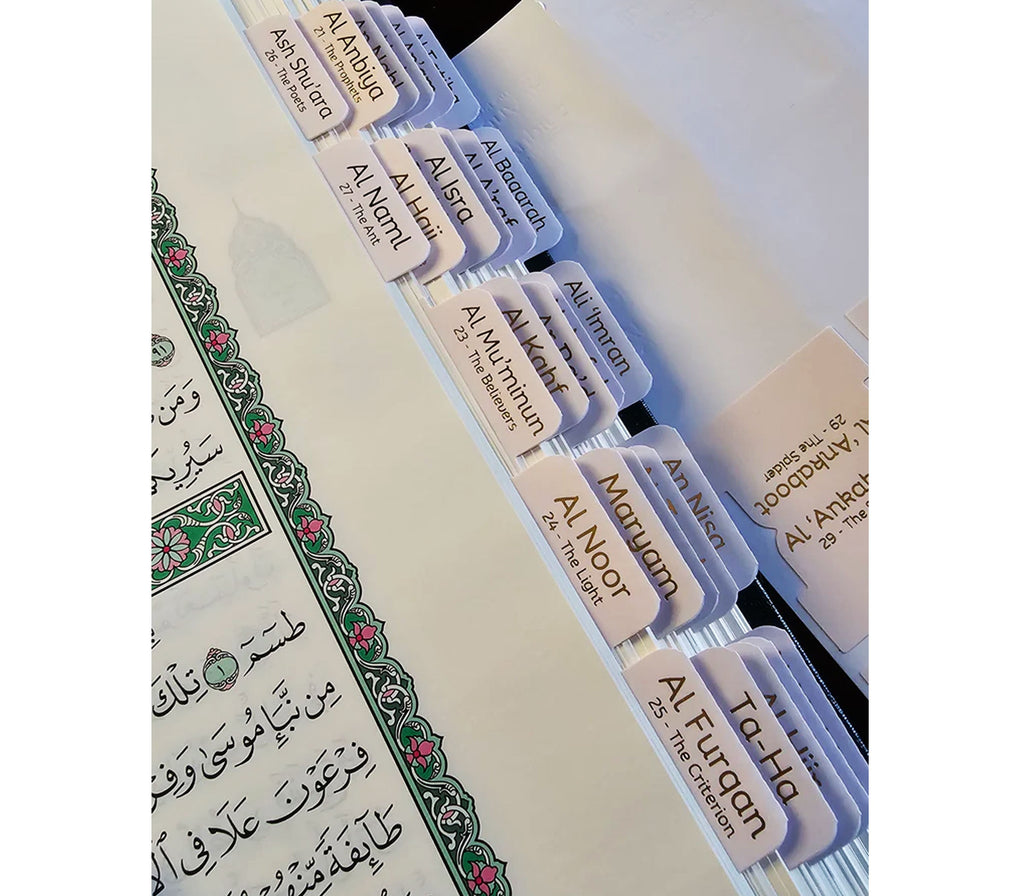 Ash Shu'ara
26 - The Poets
Al Anbiya
21 - The Prophets
An Nahl
Al Naml
27 - The Ant
Al Hajj
Al Isra
Al A'raf
Al Baqarah
Al Mu'minun
23 - The Believers
Al Kahf
Ali 'Imran
Al Noor
24 - The Light
Maryam
An Nisa
Al Furqan
25 - The Criterion
Ta-Ha
'Ankaboot
29 - The Spider
Al 'Ankab
29 - The
٩١
وَمَن
طسٓمٓ ١ تِلْكَ
مِن نَّبَإِ مُوسَىٰ وَفِرْ
فِرْعَوْنَ عَلَا فِي
طَآئِفَةً مِّنْهُمْ